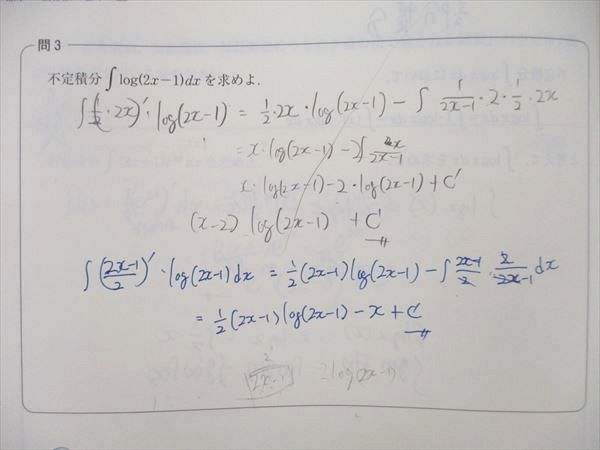 問3
不定積分 ∫ log(2x−1)dx を求めよ.
∫(1/2・2x)′・log(2x−1) = 1/2・2x・log(2x−1) − ∫ 1/(2x−1)・2・1/2・2x
= x・log(2x−1) − 2∫ x/(2x−1)
x・log(2x−1) − 2・log(2x−1) + C
(x−2) log(2x−1) + C
∫((2x−1)/2)′・log(2x−1)dx = 1/2(2x−1)log(2x−1) − ∫ (2x−1)/2・2/(2x−1) dx
= 1/2(2x−1)log(2x−1) − x + C
2/(2x−1) log(2x−1)